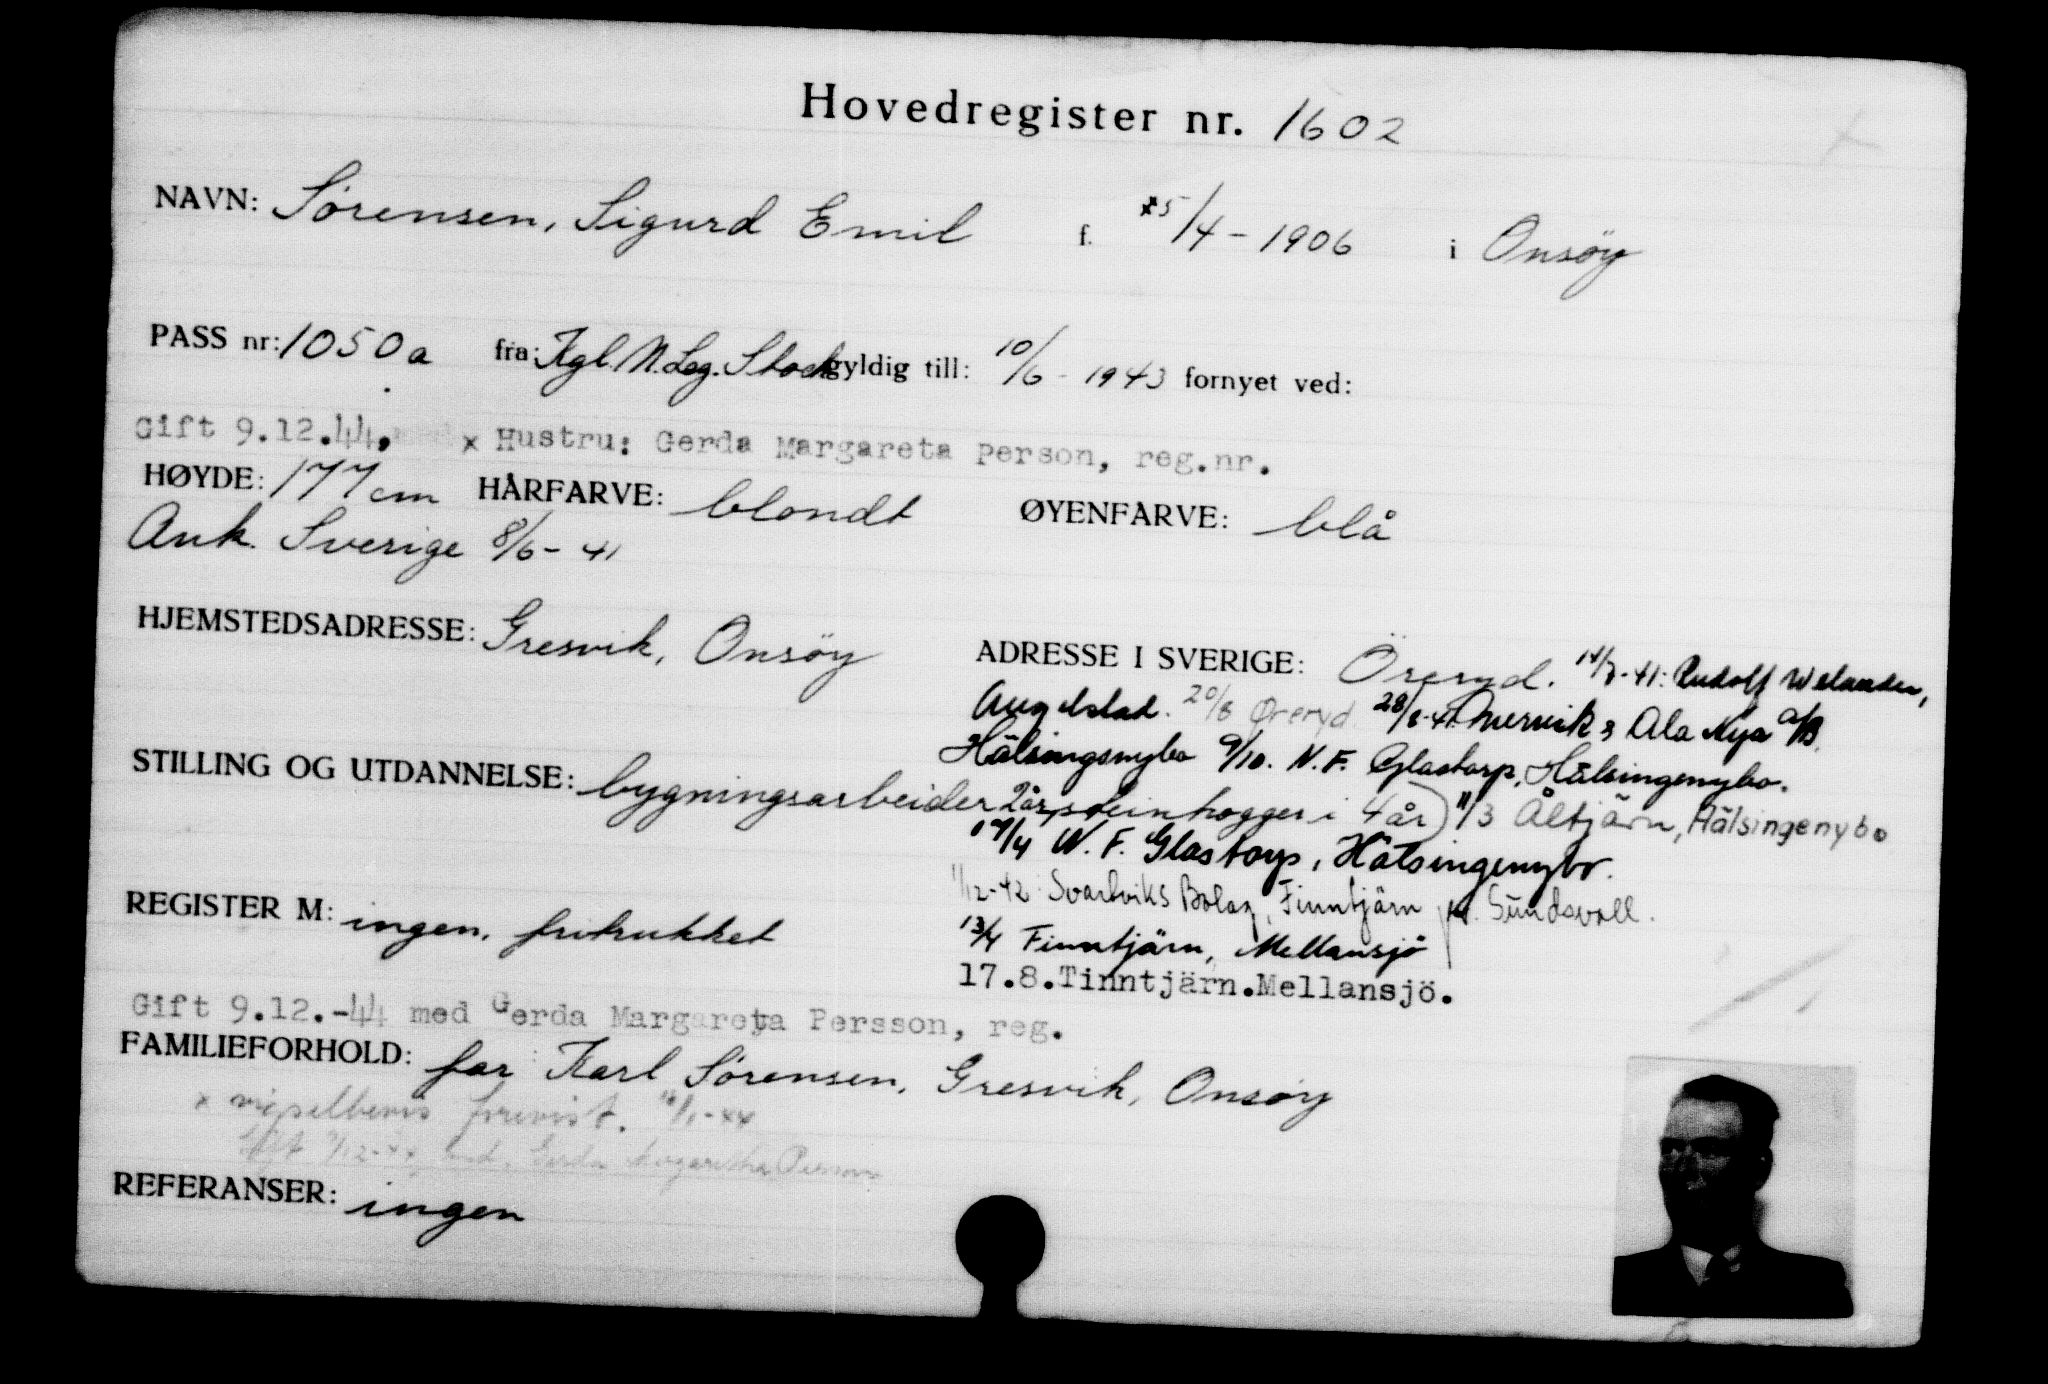 Hovedregister nr. 1602
NAVN: Sörensen, Sigurd Emil f. 5/4 - 1906 i Onsöy
PASS nr: 1050a fra: Kgl. N. Leg. Stock gyldig till: 10/6 - 1943 fornyet ved:
Gift 9.12.44. x Hustru: Gerda Margareta Person, reg.nr.
HØYDE: 177 cm HÅRFARVE: blondt ØYENFARVE: blå
Ank. Sverige 8/6 - 41
HJEMSTEDSADRESSE: Gresvik, Onsöy
ADRESSE I SVERIGE: Öreryd. 14/7-41: Rudolf Welander,
Angelstad. 20/8 Öreryd 28/8-41 Ala Nya A/B.
Hälsingenybo 9/10. N.F. Glastorp, Hälsingenybo.
STILLING OG UTDANNELSE: bygningsarbeider steinhogger i 4 år) 11/3 Åltjärn, Hälsingenybo
17/4 N.F. Glastorp, Hälsingenybo.
1/12-42 Svartviks Bolag, Finntjärn Sundsvall.
REGISTER M: ingen, fritrukket
13/4 Finntjärn, Mellansjö
17.8.Tinntjärn.Mellansjö.
Gift 9.12.-44 med Gerda Margareta Persson, reg.
FAMILIEFORHOLD: far Karl Sörensen, Gresvik, Onsöy
x vigselbevis forevist. 16/1-44
Gift 9/12-44 med Gerda Margaretha
REFERANSER: ingen